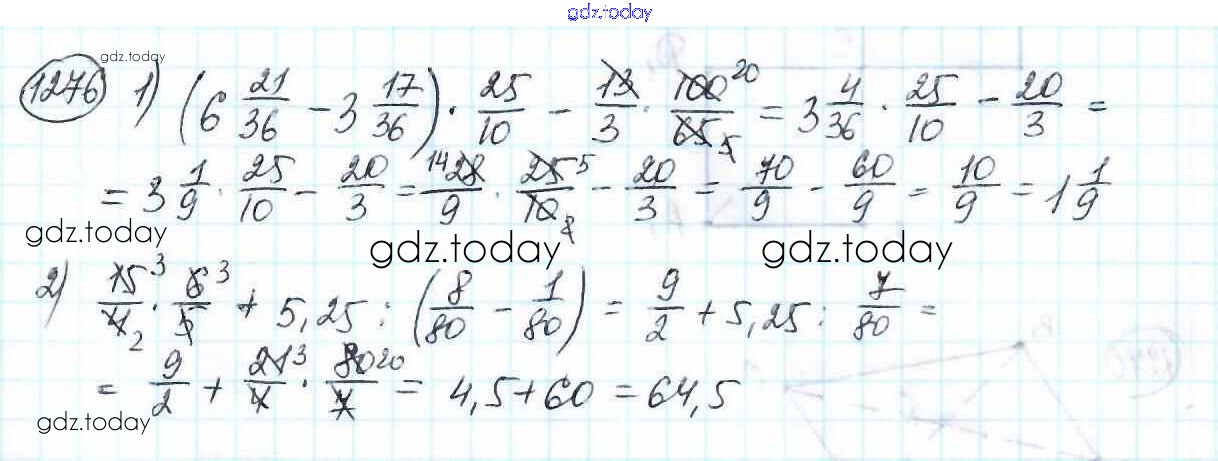 gdz.today
gdz.today
1276 1) (6 21/36 - 3 17/36) · 25/10 - 13/3 · 100 20/65 5 = 3 4/36 · 25/10 - 20/3 =
= 3 1/9 · 25/10 - 20/3 = 14 28/9 · 25 5/10 2 - 20/3 = 70/9 - 60/9 = 10/9 = 1 1/9
gdz.today gdz.today gdz.today
2) 15 3/4 2 · 6 3/5 + 5,25 : (8/80 - 1/80) = 9/2 + 5,25 : 7/80 =
= 9/2 + 21 3/4 · 80 20/7 = 4,5 + 60 = 64,5
gdz.today